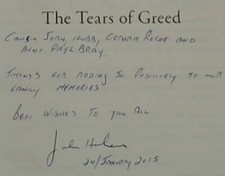 The Tears of Greed
COUSIN JOHN, HUBBY, COUSIN ROGER AND
AUNT PHYL BRAY,
THANKS FOR ADDING SO POSITIVELY TO OUR
FAMILY MEMORIES
BEST WISHES TO YOU ALL
John
24/JANUARY 2015